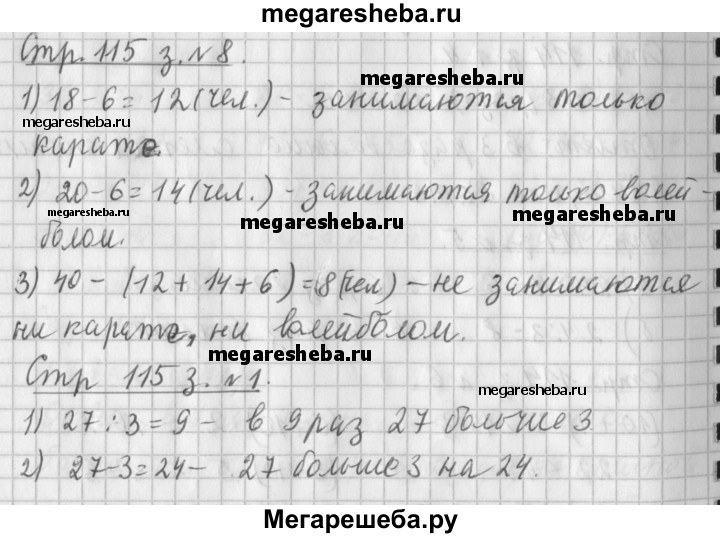 megaresheba.ru
Стр. 115 з. №8.
1) 18-6=12(чел.) - занимаются только
megaresheba.ru
megaresheba.ru
карате.
2) 20-6=14(чел.) - занимаются только волей-
megaresheba.ru
megaresheba.ru
megaresheba.ru
болом.
3) 40 - (12+14+6)=8(чел) - не занимаются
ни карате, ни волейболом.
megaresheba.ru
Стр 115 з. №1.
megaresheba.ru
1) 27:3=9 - в 9 раз 27 больше 3
2) 27-3=24- 27 больше 3 на 24.
Мегарешеба.ру